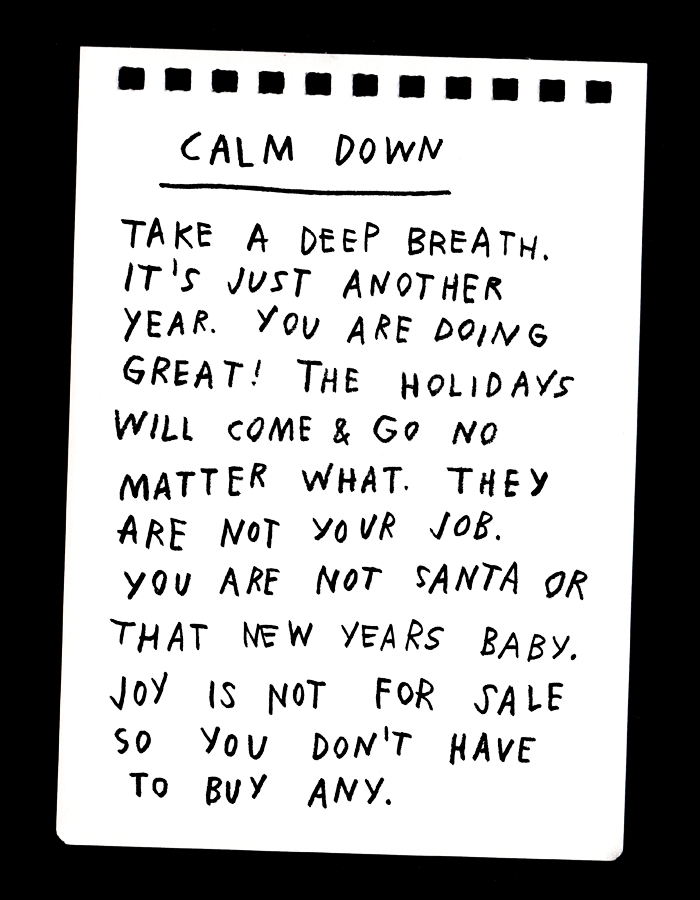 CALM DOWN
TAKE A DEEP BREATH.
IT'S JUST ANOTHER
YEAR. YOU ARE DOING
GREAT! THE HOLIDAYS
WILL COME & GO NO
MATTER WHAT. THEY
ARE NOT YOUR JOB.
YOU ARE NOT SANTA OR
THAT NEW YEARS BABY.
JOY IS NOT FOR SALE
SO YOU DON'T HAVE
TO BUY ANY.